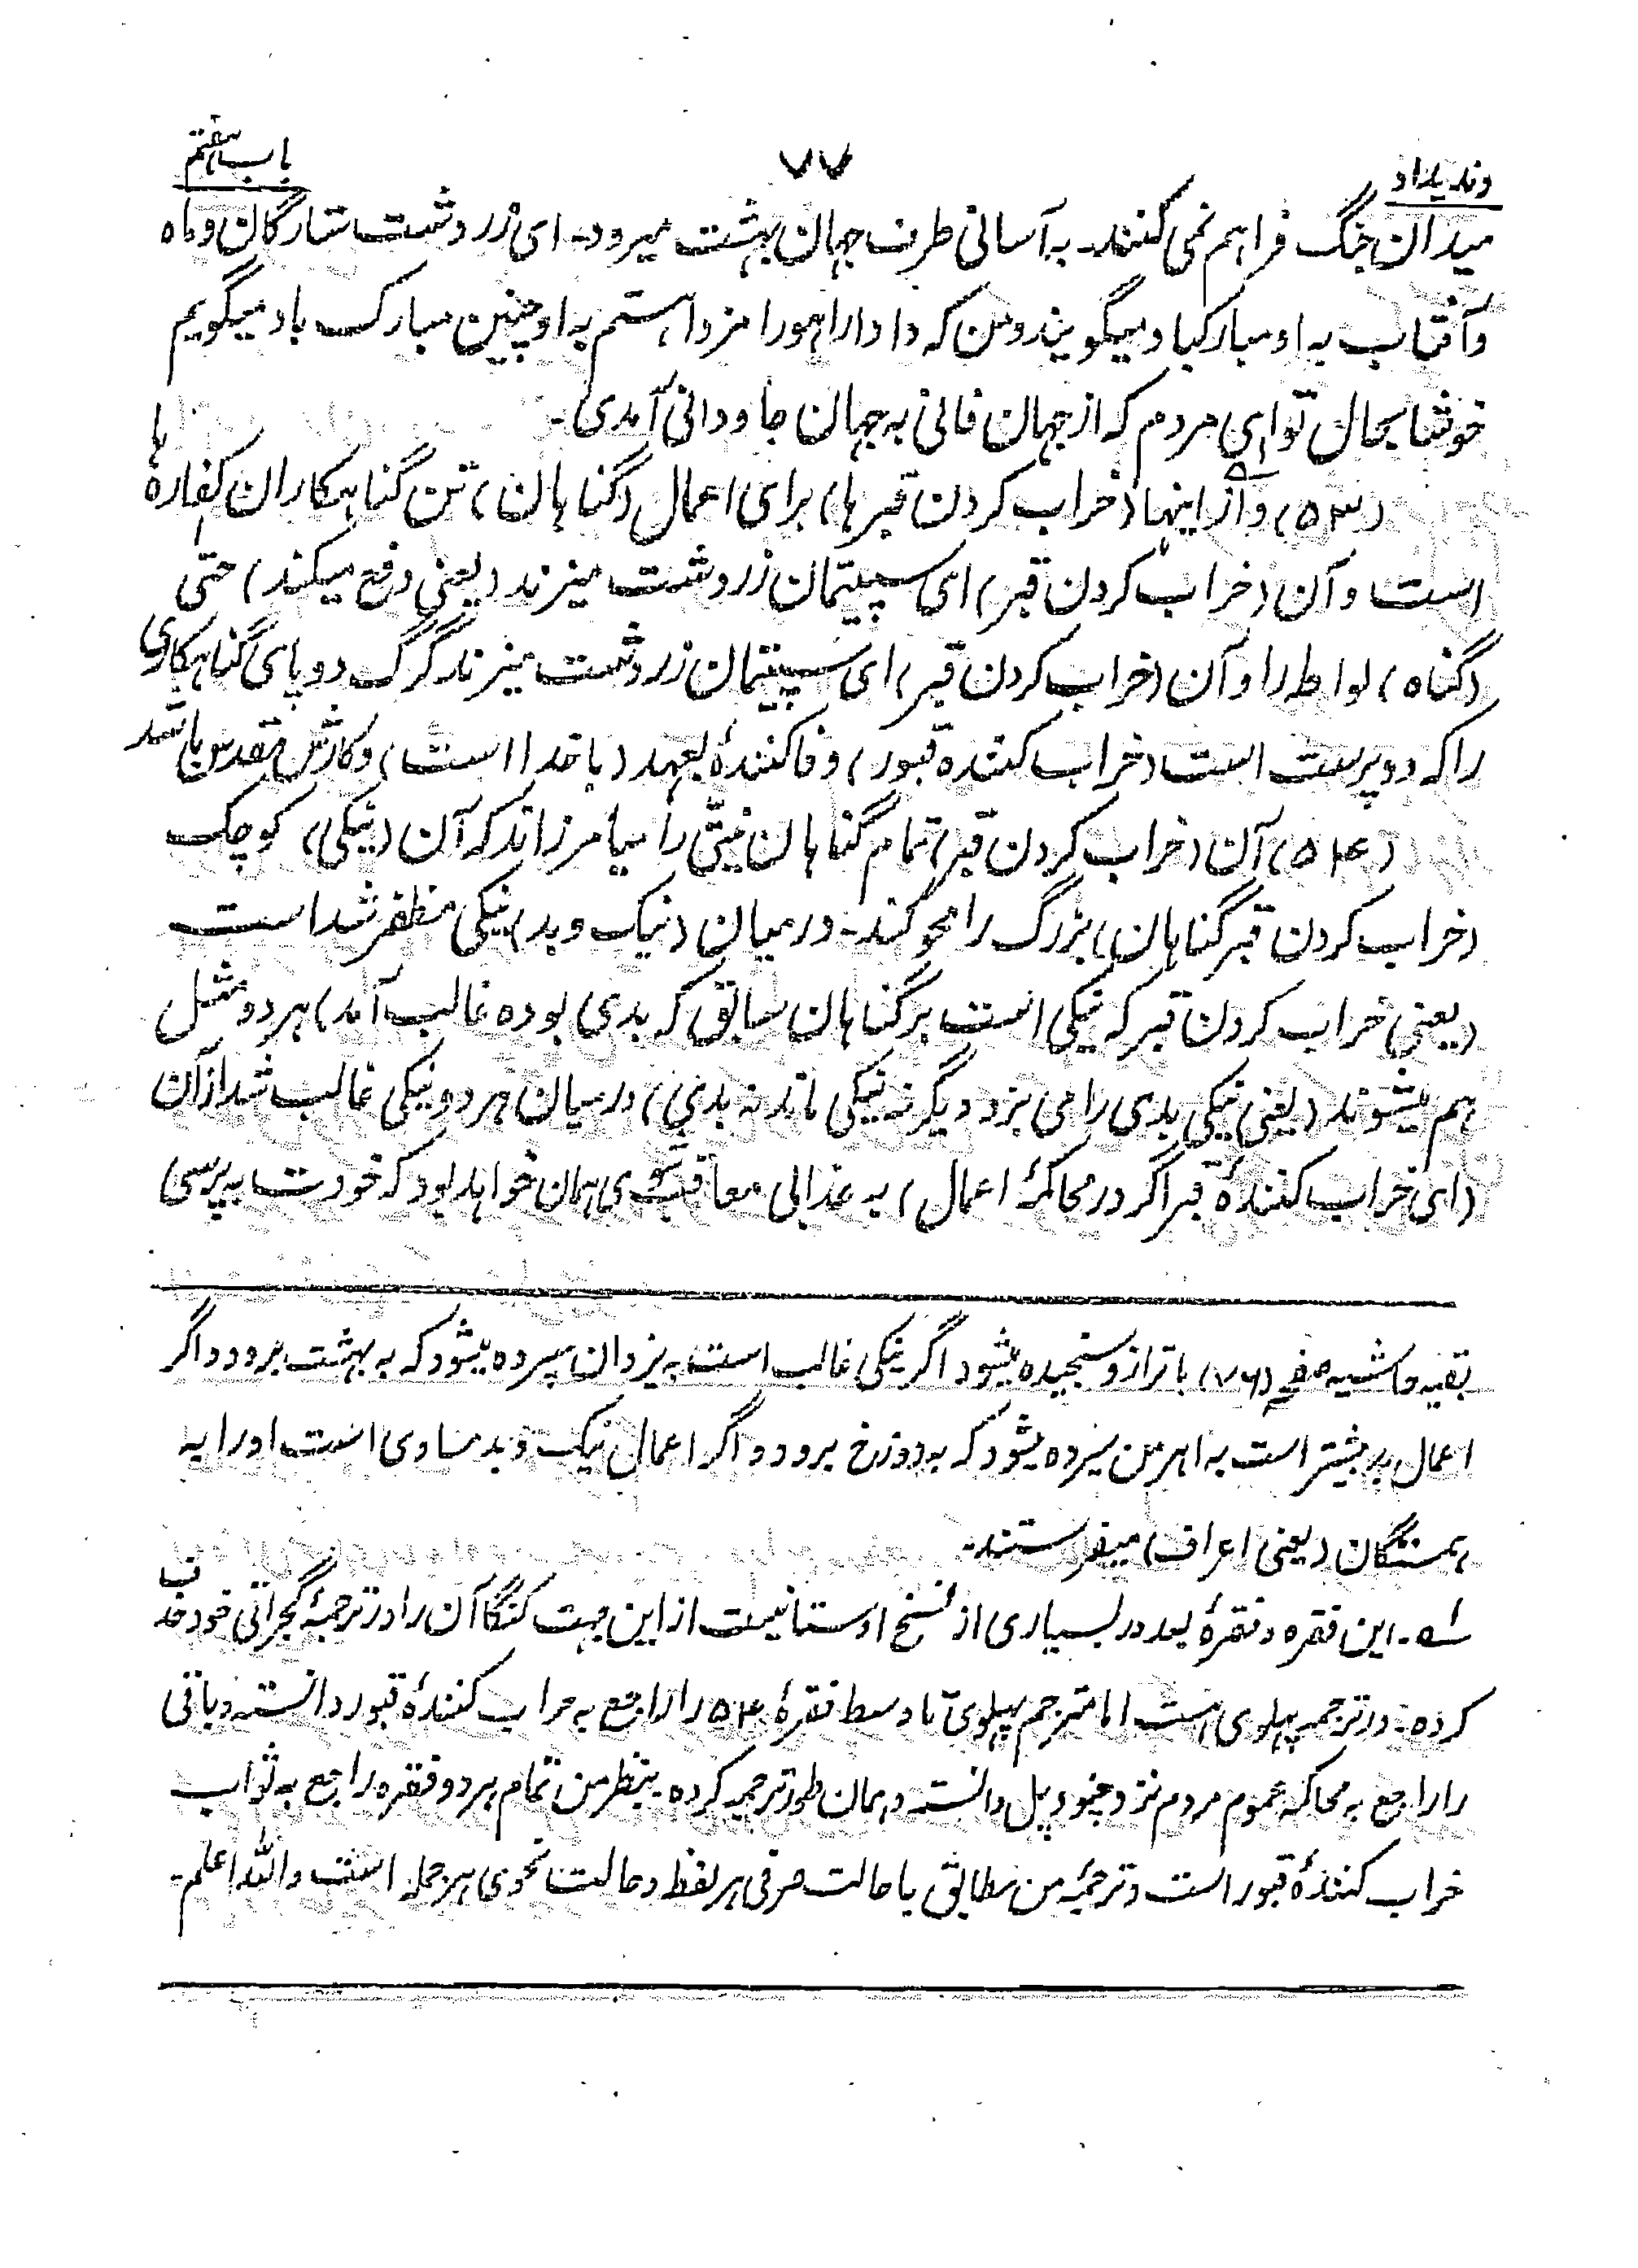 وندیداد
۷۷
باب هفتم
میدان جنگ فراهم نمی کنند۔ به آسانی طرف جهان بهشت میرود۔ ای زردوشت ستارگان و ماه
و آفتاب به او مبارکباد میگویند و من که دادار اهورامزدا هستم به او چنین مبارک باد میگویم
خوشا بحال تو ای مردم که از جهان فانی به جهان جاودانی آمدی۔
(۵۳) و از اینها (خراب کردن قبرها) برای اعمال (گناهان) تن گناهکاران کفاره ها
است و آن (خراب کردن قبر) ای سپیتمان زردوشت میزند (یعنی دفع میکند) حتی
(گناه) لواطه را و آن (خراب کردن قبر) ای سپیتمان زردوشت میزند گرگ دوپای گناهکاری
را که دوپرست است (خراب کننده قبور) وفا کنندهٔ بعهد (با خدا است) و کارش مقدس باشد
(۵۴) آن (خراب کردن قبر) تمام گناهان نیتی را میامرزاند که آن (نیکی) کوچک
(خراب کردن قبر گناهان) بزرگ را محو کند۔ در میان (نیک و بد) نیکی مظفر شد است
(یعنی خراب کردن قبر که نیکی است بر گناهان سابق که بدی بوده غالب آمد) هر دو مثل
هم میشوند (یعنی نیکی بدی را می برد دیگر نه نیکی ماند نه بدی) در میان هر دو نیکی غالب شد از آن
(ای خراب کنندهٔ قبر اگر در محاکمهٔ اعمال) به عذابی معاقب شوی همان خواهد بود که خودت به پرسی
بقیه حاشیه صفحه (۷۶) با ترازو سنجیده میشود اگر نیکی غالب است به یزدان سپرده میشود که به بهشت برود و اگر
اعمال بد بیشتر است به اهرمن سپرده میشود که به دوزخ برود و اگر اعمال نیک و بد مساوی است او را به
همستگان (یعنی اعراف) میفرستند۔
له۔ این فقره و فقرهٔ بعد در بسیاری از نسخ اوستا نیست از این جهت کنگا آن را در ترجمهٔ گجراتی خود حذف
کرده۔ در ترجمه پهلوی هست اما مترجم پهلوی تا وسط فقرهٔ ۵۴ را راجع به خراب کنندهٔ قبور دانسته و باقی
را راجع به محاکمه عموم مردم نزد چنود پل دانسته و همان طور ترجمه کرده بنظر من تمام هر دو فقره راجع به ثواب
خراب کنندهٔ قبور است و ترجمهٔ من مطابق با حالت صرفی هر لفظ و حالت نحوی هر جمله است والله اعلم۔